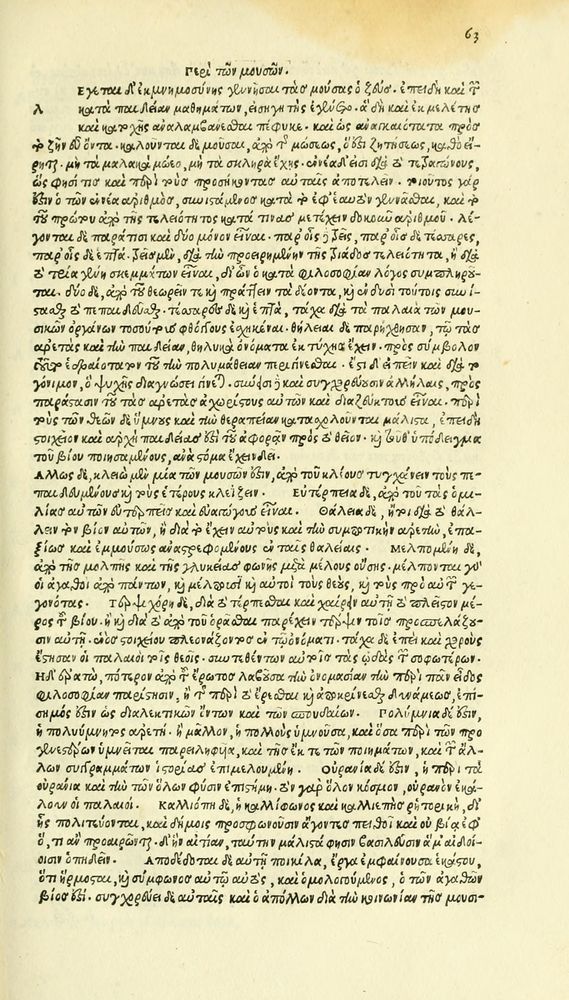 63
Περὶ τῶν μουσῶν.
Λ
Εγεται δ' ἐκ μνημοσύνης γεννῆσαι τὰς μούσας ὁ ζεύς. ἐπειδὴ καὶ τῶν
κατὰ παιδείαν μαθημάτων, εἰσηγητὴς ἐγένετο. ἃ δὴ καὶ ἐκ μελέτης
καὶ κατοχῆς ἀναλαμβάνεσθαι πέφυκε. καὶ ὡς ἀναγκαιότατα πρὸς
τὸ ζῆν εὖ ὄντα. καλοῦνται δὲ μοῦσαι, ἀπὸ τῆς μώσεως, ὅ ἐστι ζητήσεως, καθὸ εἴ-
ρηται. μὴ τὰ μαλακὰ μώεο, μὴ τὰ σκληρὰ ἔχῃς. ἐννέα δ' εἰσὶ διὰ τὸ τετραγώνους,
ὥς φησί τις καὶ περιττοὺς προσήκοντας αὐταῖς ἀποτελεῖν. τοιοῦτος γάρ
ἐστιν ὁ τῶν ἐννέα ἀριθμὸς, συνιστάμενος κατὰ τὸ ἐφ' ἑαυτὸν γενᾶσθαι, καὶ τὸ
τοῦ πρώτου ἀπὸ τῆς τελειότητος κατὰ τινὰς μετέχειν δοκοῦν ἀριθμοῦ. λέ-
γονται δὲ παρά τισι καὶ δύο μόνον εἶναι. παρ' οἷς δὲ τρεῖς, παρ' οἷς δὲ τέσσαρες,
παρ' οἷς δὲ ἑπτά. τρεῖς μὲν, διὰ τὴν προειρημένην τῆς τριάδος τελειότητα, ἢ διὰ
τὸ τρία γένη σκεμμάτων εἶναι, δι' ὧν ὁ κατὰ φιλοσοφίαν λόγος συμπληροῦ-
ται. δύο δὲ, ἀπὸ τοῦ θεωρεῖν τε καὶ πράττειν τὰ δέοντα, καὶ ἐν δυσὶ τούτοις συνί-
στασθαι τὸ πεπαιδεῦσθαι. τέσσαρες δὲ καὶ ἑπτὰ, τάχα διὰ τὸ τὰ παλαιὰ τῶν μου-
σικῶν ὀργάνων τοσούτους φθόγγους ἐσχηκέναι. θήλειαι δὲ παρήχθησαν, τῷ τὰς
ἀρετὰς καὶ τὴν παιδείαν, θηλυκὰ ὀνόματα ἐκ τύχης ἔχειν. πρὸς σύμβολον
ἑδραιότατον τοῦ τὴν πολυμάθειαν περιγίνεσθαι. ἔστι δ' εἰπεῖν καὶ διὰ τὸ
γόνιμον, ὃ ψυχῆς διαγνώσει γίνεται. σύνεισι δὲ καὶ συγχορεύουσιν ἀλλήλαις, πρὸς
παράστασιν τοῦ τὰς ἀρετὰς ἀχωρίστους αὐτῶν καὶ διαζεύκτους εἶναι. περὶ
τοὺς τῶν θεῶν δὲ ὕμνους καὶ τὴν θεραπείαν κατασχολοῦνται μάλιστα, ἐπειδὴ
στοιχεῖον καὶ ἀρχὴ παιδείας ἐστὶ τοῦ ἀφορᾶν πρὸς τὸ θεῖον. καὶ τοῦθ' ὑπόδειγμα
τοῦ βίου ποιησαμένους, ἀνὰ στόμα ἔχειν δεῖ.
Αλλως δὲ, κλειὼ μὲν μία τῶν μουσῶν ἐστιν, ἀπὸ τοῦ κλέους τυγχάνειν τοὺς πε-
παιδευμένους καὶ τοὺς ἑτέρους κλείζειν. Εὐτέρπεια δὲ, ἀπὸ τοῦ τὰς ὁμι-
λίας αὐτῶν εὐτερπεῖς καὶ εὐαγώγους εἶναι. Θάλεια δὲ, ἤτοι διὰ τὸ θάλ-
λειν τὸν βίον αὐτῶν, ἢ διὰ τὸ ἔχειν αὐτοὺς καὶ τὴν συμποτικὴν ἀρετὴν, ἐπα-
ξίως καὶ ἐμμούσως ἀναστρεφομένους ἐν ταῖς θαλείαις. Μελπομένη δὲ,
ἀπὸ τῆς μολπῆς καὶ τῆς γλυκείας φωνῆς μετὰ μέλους οὔσης. μέλπονται γὰρ
οἱ ἀγαθοὶ ἀπὸ πάντων, καὶ μέλπουσι καὶ αὐτοὶ τοὺς θεοὺς, καὶ τοὺς πρὸ αὐτῶν γε-
γονότας. Τερψιχόρη δὲ, διὰ τὸ τέρπεσθαι καὶ χαίρειν αὐτῇ τὸ πλεῖστον μέ-
ρος τοῦ βίου. ἢ καὶ διὰ τὸ ἀπὸ τοῦ ὁρᾶσθαι παρέχειν τέρψιν τοῖς προσπελάζου-
σιν αὐτῇ. ἑνὸς στοιχείου πλεονάζοντος ἐν τῷ ὀνόματι. τάχα δὲ ἐπεὶ καὶ χοροὺς
ἵστησαν οἱ παλαιοὶ τοῖς θεοῖς. συντεθέντων αὐτοῖς τὰς ᾠδὰς τῶν σοφωτέρων.
Ηδ' ἐρατὼ, πότερον ἀπὸ τοῦ ἔρωτος λαβοῦσα τὴν ὀνομασίαν τὴν περὶ πᾶν εἶδος
φιλοσοφίαν παρίστησιν, ἢ τῆς περὶ τὸ ἔρεσθαι καὶ ἀποκρίνεσθαι δυνάμεως, ἐπί-
σημός ἐστιν ὡς διαλεκτικῶν ὄντων καὶ τῶν σπουδαίων. Πολύμνια δέ ἐστιν,
ἡ πολυύμνητος ἀρετή. ἢ μᾶλλον, ἡ πολλοὺς ὑμνοῦσα, καὶ ὅσα περὶ τῶν προ
γενεστέρων ὑμνεῖται παρειληφυῖα, καὶ τῆς ἔκ τε τῶν ποιημάτων, καὶ τῶν ἄλ-
λων συγγραμμάτων ἱστορίας ἐπιμελουμένη. Οὐρανία δέ ἐστιν, ἡ περὶ τὰ
οὐράνια καὶ τὴν τῶν ὅλων φύσιν ἐπιστήμη. τὸν γὰρ ὅλον κόσμον, οὐρανὸν ἐκά-
λουν οἱ παλαιοί. Καλλιόπη δὲ, ἡ καλλίφωνος καὶ καλλιεπὴς ῥητορικὴ, δι'
ἧς πολιτεύονται, καὶ δήμοις προσφωνοῦσιν ἄγοντες πειθοῖ καὶ οὐ βίᾳ ἐφ'
ὅ, τι ἂν προαιρῶνται. δι' ἣν αἰτίαν, ταύτην μάλιστά φησιν βασιλεῦσιν ἅμ' αἰδοί-
οισιν ὀπηδεῖν. Αποδέδοται δὲ αὐτῇ ποικίλα, ἔργα ἐμφαίνουσα ἑκάστου,
ὅτι ἥρμοσται, καὶ σύμφωνος αὐτῷ αὑτὸς, καὶ ὁμολογούμενος, ὁ τῶν ἀγαθῶν
βίος ἐστί. συγχορεύει δὲ αὐταῖς καὶ ὁ ἀπόλλων διὰ τὴν κοινωνίαν τῆς μουσι-